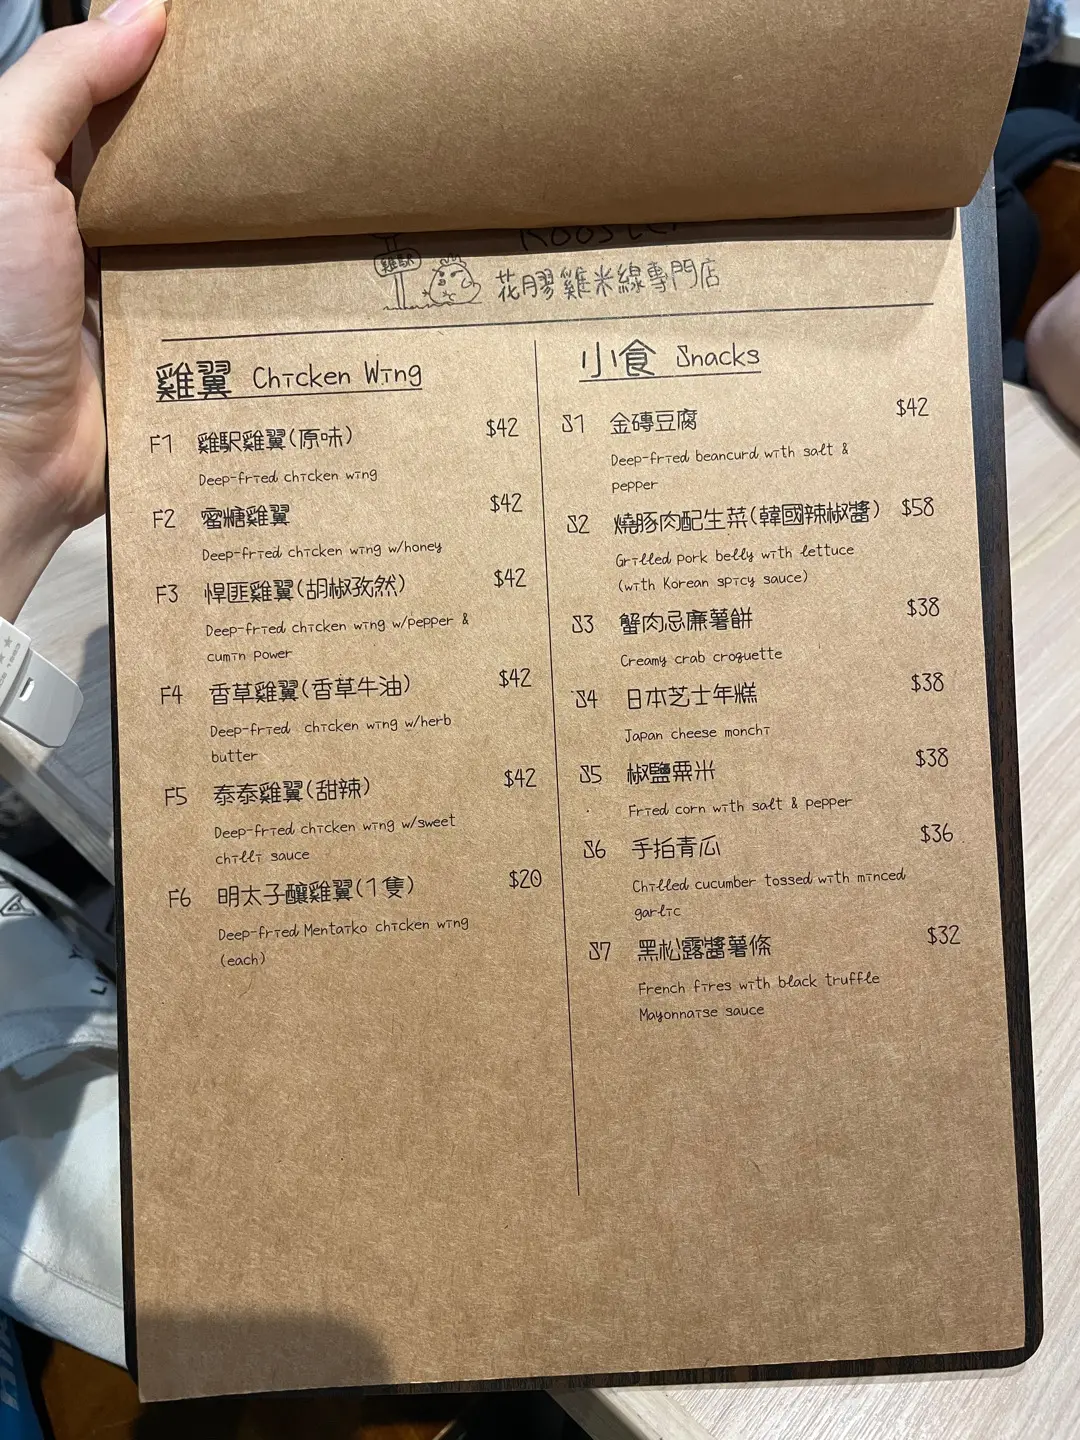 Rooster
雞駅
花膠雞米線專門店
雞翼 Chicken Wing
F1 雞駅雞翼(原味) $42
Deep-fried chicken wing
F2 蜜糖雞翼 $42
Deep-fried chicken wing w/honey
F3 悍匪雞翼(胡椒孜然) $42
Deep-fried chicken wing w/pepper &
cumin power
F4 香草雞翼(香草牛油) $42
Deep-fried chicken wing w/herb
butter
F5 泰泰雞翼(甜辣) $42
Deep-fried chicken wing w/sweet
chilli sauce
F6 明太子釀雞翼(1隻) $20
Deep-fried Mentaiko chicken wing
(each)
小食 Snacks
S1 金磚豆腐 $42
Deep-fried beancurd with salt &
pepper
S2 燒豚肉配生菜(韓國辣椒醬) $58
Grilled pork belly with lettuce
(with Korean spicy sauce)
S3 蟹肉忌廉薯餅 $38
Creamy crab croquette
S4 日本芝士年糕 $38
Japan cheese monchi
S5 椒鹽粟米 $38
Fried corn with salt & pepper
S6 手拍青瓜 $36
Chilled cucumber tossed with minced
garlic
S7 黑松露醬薯條 $32
French fires with black truffle
Mayonnaise sauce